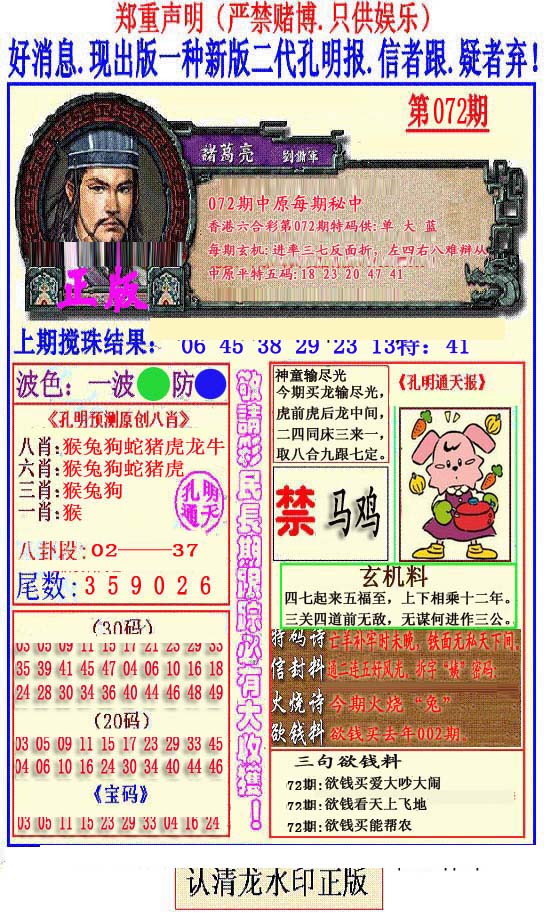 郑重声明（严禁赌博.只供娱乐）
好消息.现出版一种新版二代孔明报.信者跟.疑者弃！
第072期
諸葛亮 劉備軍
072期中原每期秘中
香港六合彩第072期特码供:单 大 蓝
每期玄机:进率三七反面折，左四右八难辩从
中原平特五码:18 23 20 47 41
正版
上期搅珠结果： 06 45 38 29 23 13特：41
波色：一波 防
《孔明预测原创八肖》
八肖:猴兔狗蛇猪虎龙牛
六肖:猴兔狗蛇猪虎
三肖:猴兔狗
一肖:猴
孔明通天
八卦段:02———37
尾数:359026
敬請彩民長期跟踪必有大收獲！
神童输尽光
今期买龙输尽光，
虎前虎后龙中间，
二四同床三来一，
取八合九跟七定。
《孔明通天报》
禁 马鸡
玄机料
四七起来五福至，上下相乘十二年。
三关四道前无敌，无谋何进作三公。
特码诗 亡羊补牢时未晚，铁面无私天下间。
信封料 通二连五好风光，拆字“嫉”密码；
火烧诗 今期火烧“兔”
欲钱料 欲钱买去年002期。
三句欲钱料
72期:欲钱买爱大吵大闹
72期:欲钱看天上飞地
72期:欲钱买能帮农
（30码）
03 05 09 11 15 17 21 23 29 33
35 39 41 45 47 04 06 10 16 18
24 28 30 34 36 40 44 46 48 49
（20码）
03 05 09 11 15 17 23 29 33 45
04 06 10 16 24 30 34 40 44 46
《宝码》
03 05 11 15 23 29 33 04 16 24
认清龙水印正版